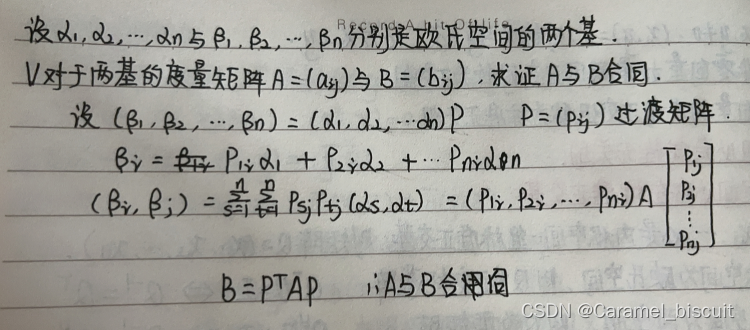 设α1,α2,…,αn与β1,β2,…,βn分别是欧氏空间的两个基.
V对于两基的度量矩阵A=(aij)与B=(bij),求证A与B合同.
设(β1,β2,…,βn)=(α1,α2,…αn)P P=(Pij)过渡矩阵.
βi=P1iα1+P2iα2+…Pniαn
(βi,βj)=∑_{s=1}^{n}∑_{t=1}^{n}PsjPtj(αs,αt)=(P1i,P2i,…,Pni)A[P1j P2j ⋮ Pnj]
B=P^TAP ∴A与B合同
CSDN @Caramel_biscuit